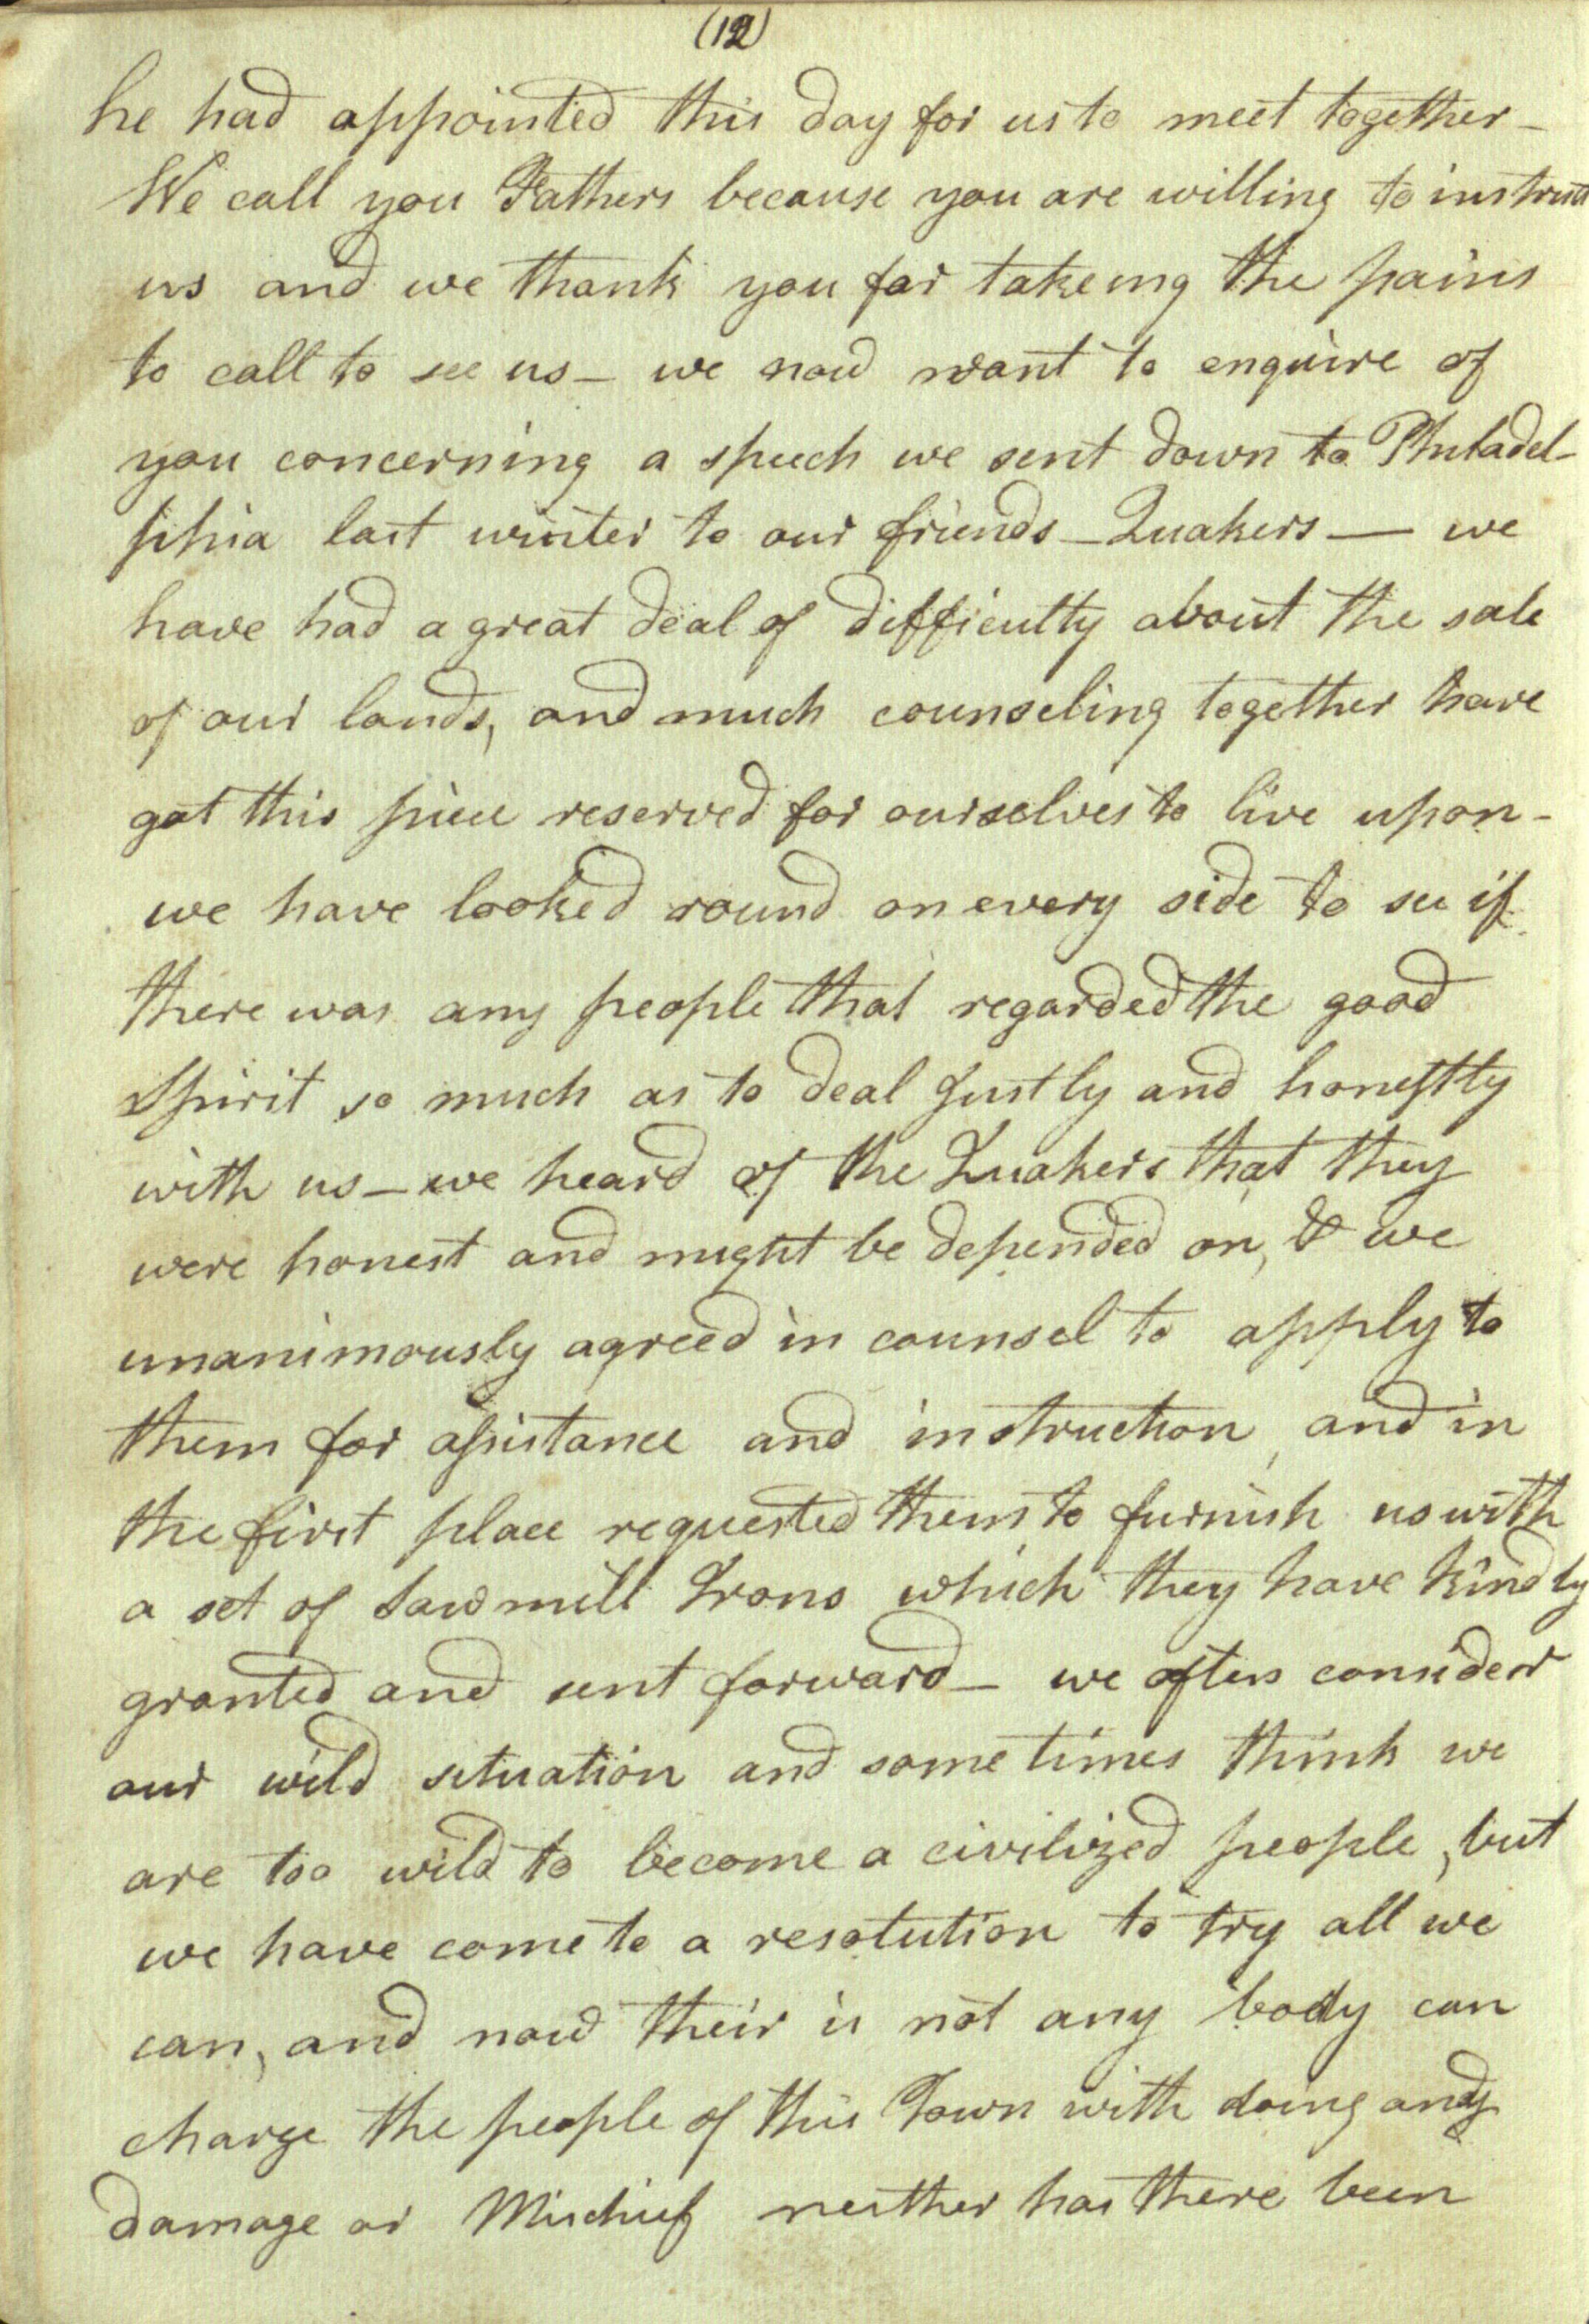 (12)
he had appointed this day for us to meet together –
We call you Fathers because you are willing to instruct
us and we thank you for takeing the pains
to call to see us – we now want to enquire of
you concerning a speech we sent down to Philadel-
phia last winter to our friends – Quakers — we
have had a great deal of difficulty about the sale
of our lands, and much counseling together have
got this piece reserved for ourselves to live upon –
we have looked round on every side to see if
there was any people that regarded the good
Spirit so much as to deal Justly and honestly
with us – we heard of the Quakers that they
were honest and might be depended on, & we
unanimously agreed in counsel to apply to
them for assistance and instruction, and in
the first place requested them to furnish us with
a set of Saw mill Irons which they have kindly
granted and sent forward – we often consider
our wild situation and some times think we
are too wild to become a civilized people, but
we have come to a resolution to try all we
can, and now their is not any body can
charge the people of this Town with doing any
damage or Mischief neither has there been